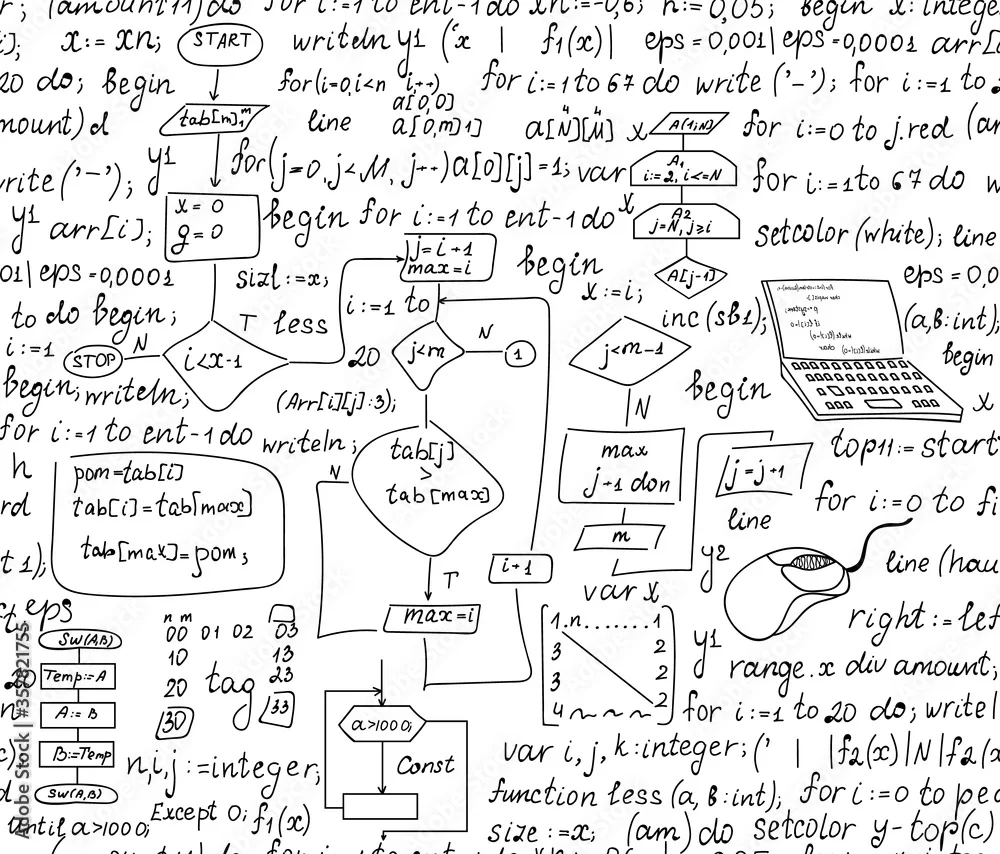 (amount11) do for i:=1 to ent-1 do xn:=-0,6; h:=0,05; Begin x: intege
x:= xn; START writeln y1 ('x | f1(x)| eps = 0,001| eps =0,0001 arr[i
20 do; Begin for(i=0,i<n i++) for i:=1 to 67 do write ('-'); for i:=1 to
a[0,0]
mount) d tab[m]1m line a[0,m]1] a[N][M] x A(1;N) for i:=0 to j.red (am
4 4
write ('-'); y1 for(j=0, j<M, j--) a[0][j]=1; var A, i:=2, i<=N for i:=1 to 67 do w
y1 arr[i]; x = 0 begin for i:=1 to ent-1 do x A2 j=N, j≥i setcolor (white); line
g = 0
j=i+1
max=i
01| eps =0,0001 sizl :=x; begin A[j-1] eps = 0,0
x:=i;
to do begin; T less i:=1 to inc(sb1); (a,b:int);
i:=1 STOP N i<x-1 20 j<m N 1 j<m-1 begin
begin; writeln; (Arr[i][j]:3); begin x
N
for i:=1 to ent-1 do writeln; tab[j] max j=j+1 top11:= start
>
h pom=tab[i] N tab[max] j+1 don
rd tab[i]=tab|max] line for i:=0 to fi
m
t 1); tab[max]=pom; i+1 y2 line (hau
T
var x
ct eps max=i right := lef
Sw(A,B) n m
00 01 02 03 1.n.......1 y1
10 13 3 2 range.x div amount;
20 Temp:=A 20 tag 23 3 2
A:= B 30 33 4 2 for i:=1 to 20 do; write
a>1000;
B:=Temp n,i,j :=integer; Const var i, j, k:integer; (' | |f2(x)|N|f2(x
Sw(A,B) function less (a, b:int); for i:=0 to
Except 0; f1(x)
Until a>1000; size :=x; (am) do setcolor y-top(c)
Adobe Stock | #359821755